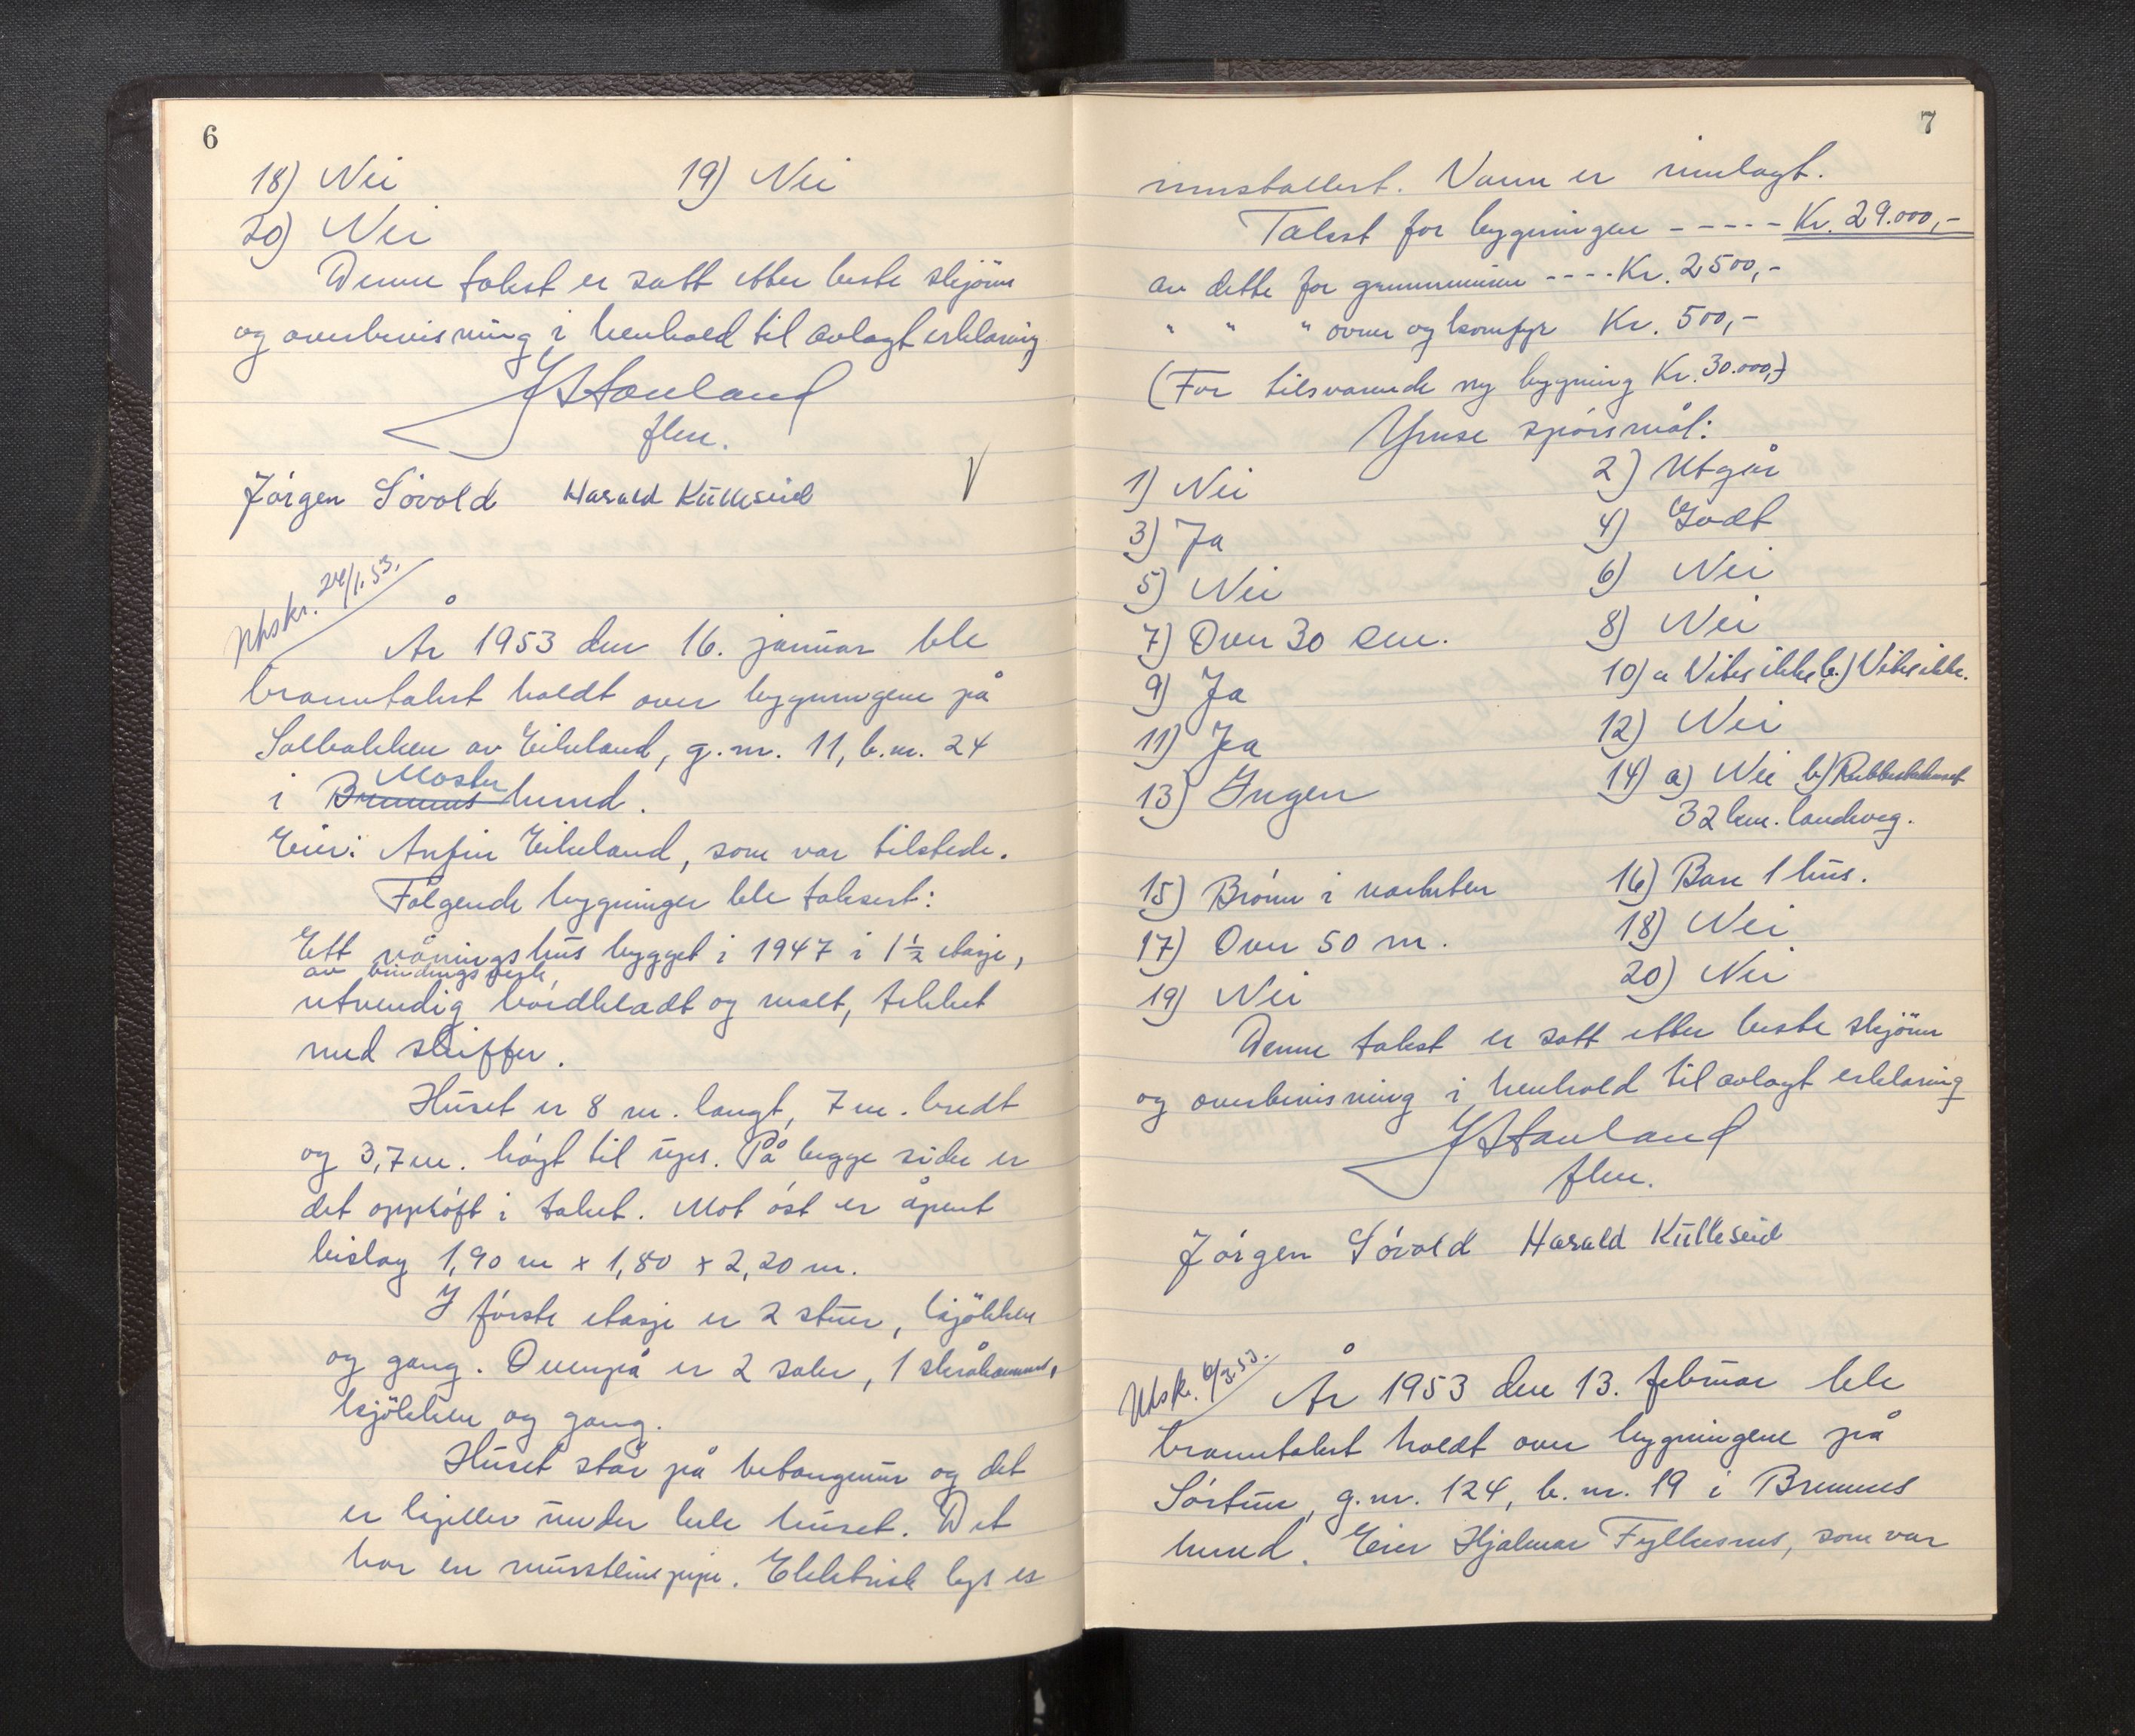 6
18) Nei 19) Nei
20) Nei
Denne takst er satt etter beste skjönn
og overbevisning i henhold til avlagt erklæring
flm.
Jórgen Sóvold Harald Kŭlleseid
Utskr. 24/1.53.
År 1953 den 16. janŭar ble
branntakst holdt over bygningene på
Solbakken av Eikeland, g.nr. 11, b.nr. 24
i Bremnes Moster herred.
Eier: Anfin Eikeland, som var tilstede.
Fólgende bygninger ble taksert:
Ett våningshŭs bygget i 1947 i 1½ etasje,
av bindingsverk,
utvendig bordkledt og malt, tekket
med skiffer.
Hŭset er 8 m. langt, 7 m. bredt
og 3,7 m. hóyt til ŭps. På begge sider er
det opplóft i taket. Mot óst er åpent
bislag 1,90 m x 1,80 x 2,20 m.
I fórste etasje er 2 stŭer, kjökken
og gang. Ovenpå er 2 saler, 1 skråkammer,
kjökken og gang.
Hŭset står på betongmŭr og det
er kjeller ŭnder hele hŭset. Det
har en mŭrsteinspipe. Elektrisk lys er
7
innstallert. Vann er innlagt.
Takst for bygningen ----- Kr. 29.000,-
av dette for grunnmuren ---- Kr. 2500,-
" " " ovner og komfyr Kr. 500,-
(For tilsvarende ny bygning Kr. 30.000,-)
Ymse spórsmål:
1) Nei 2) Utgår
3) Ja 4) Godt
5) Nei 6) Nei
7) Over 30 cm. 8) Nei
9) Ja 10) a Vites ikke b.) Vites ikke.
11) Ja 12) Nei
13) Ingen 14) a) Nei b) Rubbestadneset
32 km. landveg.
15) Brónn i nærheten 16) Bare 1 hŭs.
17) Over 50 m. 18) Nei
19) Nei 20) Nei
Denne takst er satt etter beste skjönn
og overbevisning i henhold til avlagt erklæring
flm.
Jórgen Sóvold Harald Kŭlleseid
Utskr. 6/3.53.
År 1953 den 13. febrŭar ble
branntakst holdt over bygningene på
Sórtŭn, g.nr. 124, b.nr. 19 i Bremnes
herred. Eier Hjalmar Fylkesnes, som var